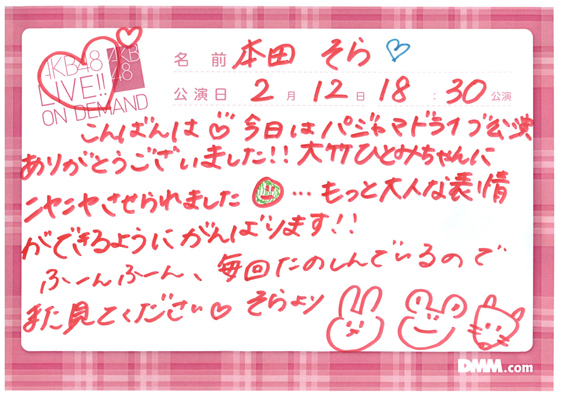 AKB48
LIVE!!
ON DEMAND
AKB
48
名前 本田 そら
公演日 2月12日18:30公演
こんばんは♡今日はパジャマドライブ公演
ありがとうございました!!大竹ひとみちゃんに
ニヤニヤさせられました…もっと大人な表情
ができるようにがんばります!!
ふーんふーん、毎回たのしんでいるので
また見てください♡ そらより
DMM.com